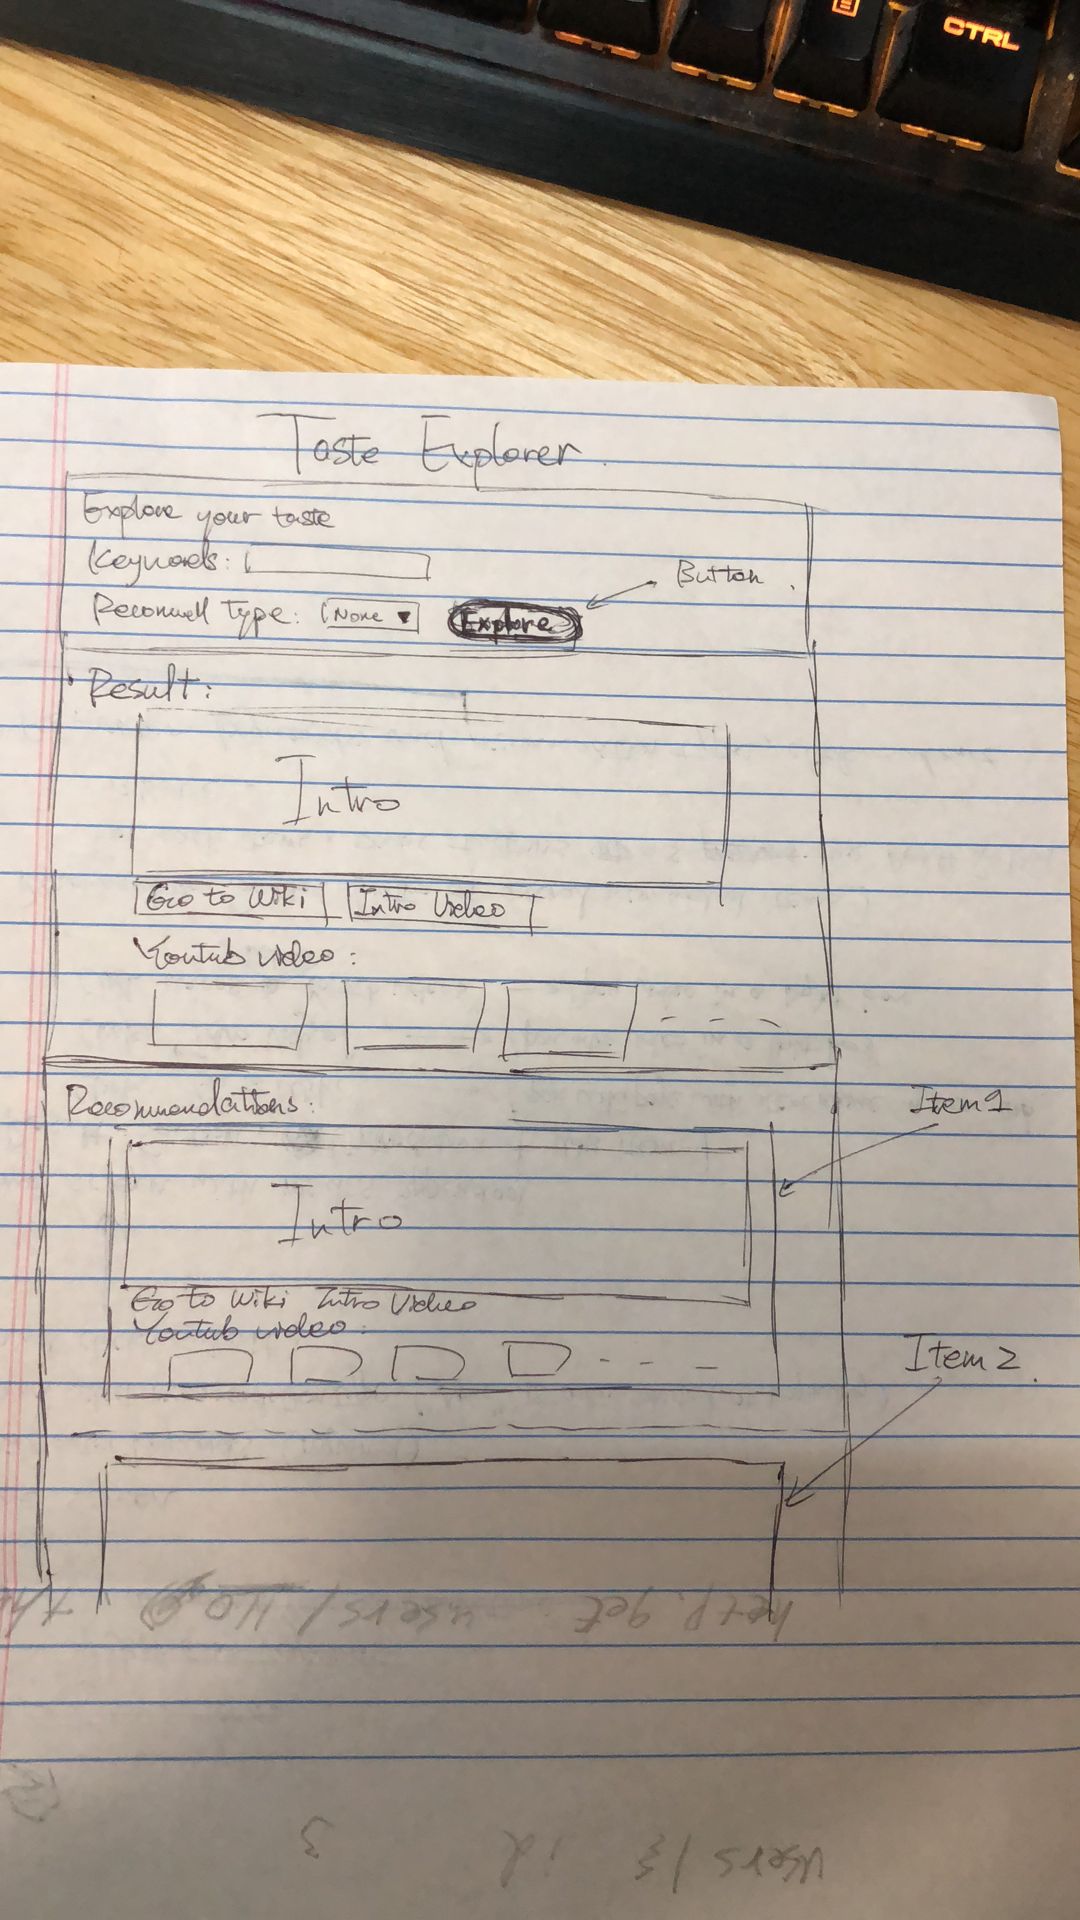 CTRL
Taste Explorer
Explore your taste
Keywords:
Button
Recommed type: None ▼ Explore
Result:
Intro
Go to Wiki Intro Video
Youtub video:
Recommendations:
Item 1
Intro
Go to Wiki Intro Video
Youtub video:
Item 2
http.get users/110
users/3 id 3